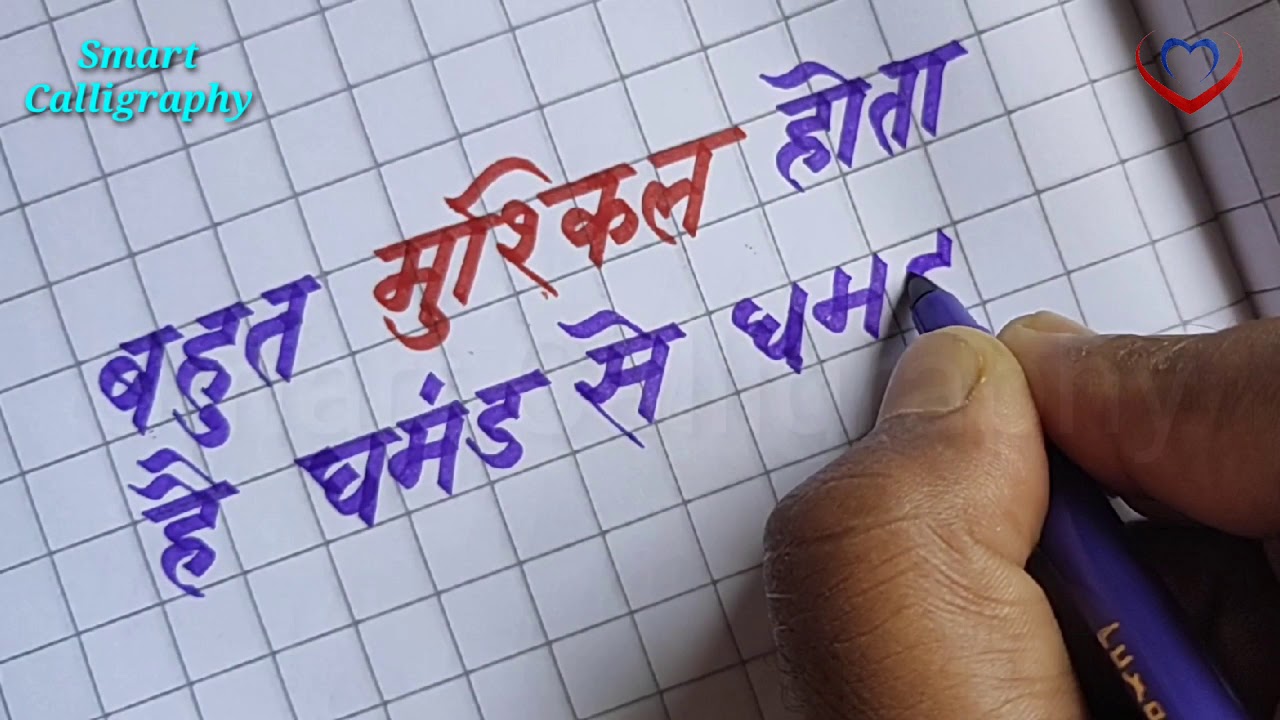 Smart
Calligraphy
बहुत मुश्किल होता
है घमंड से